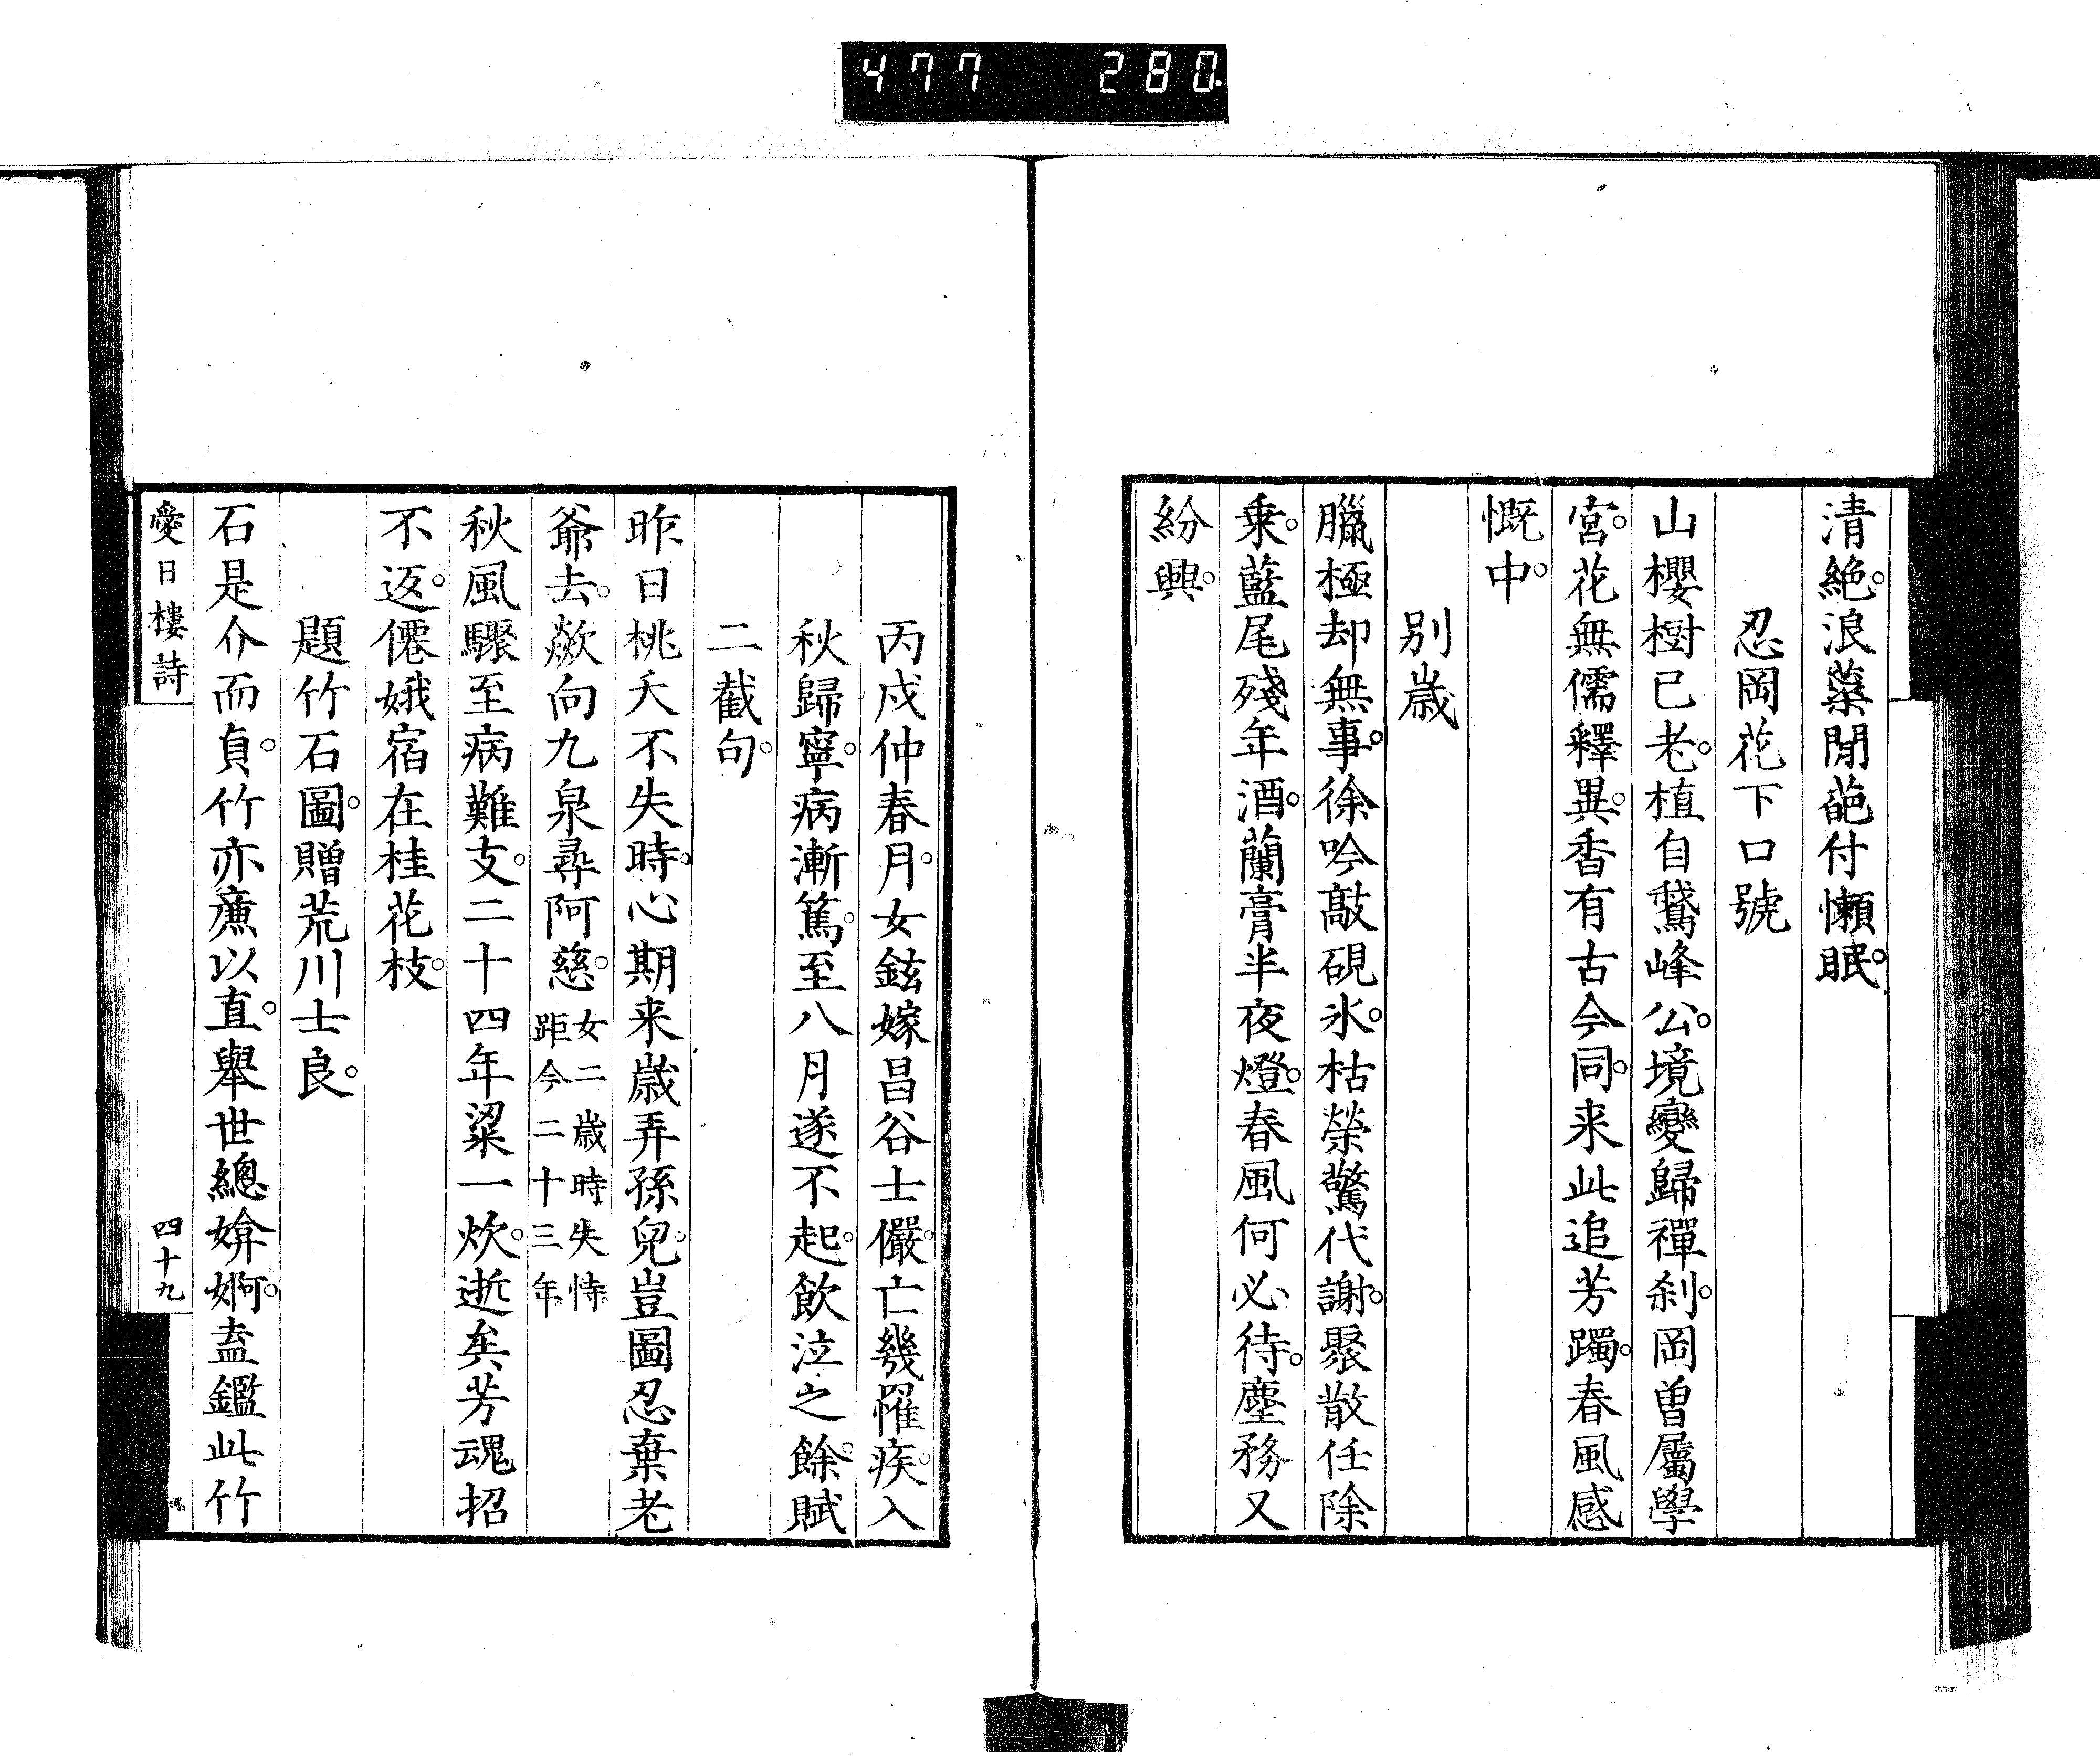 477 280
清絶。浪蘂閒葩付懶眠。
忍岡花下口號
山櫻樹已老。植自鵞峰公。境變歸禪刹。岡曽屬學
宮。花無儒釋異。香有古今同。来此追芳躅。春風感
慨中。
別歲
臘極却無事。徐吟敲硯氷。枯榮驚代謝。聚散任除
乗。藍尾殘年酒。蘭膏半夜燈。春風何必待。塵務又
紛興。
丙戍仲春。月女鉉嫁昌谷士儼。亡幾罹疾。入
秋歸寧。病漸篤。至八月遂不起。飲泣之餘。賦
二截句。
昨日桃夭不失時。心期来歲弄孫兒。豈圖忍棄老
爺去。歘向九泉尋阿慈。女二歲時失恃。距今二十三年。
秋風驟至病難支。二十四年粱一炊。逝矣芳魂招
不返。僊娥宿在桂花枝。
題竹石圖。贈荒川士良。
石是介而貞。竹亦廉以直。舉世總媕婀。盍鑑此竹
愛日樓詩
四十九